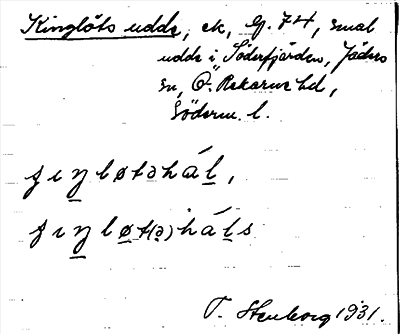 Kinglöts udde, ek, bf. 74, smal
udde i Söderfjärden, Jäders
sn, Ö. Rekarne hd,
Söderm. l.
ɟɪŋløtəhál,
ɟɪŋløt(ə)háls
T. Stenborg 1931.